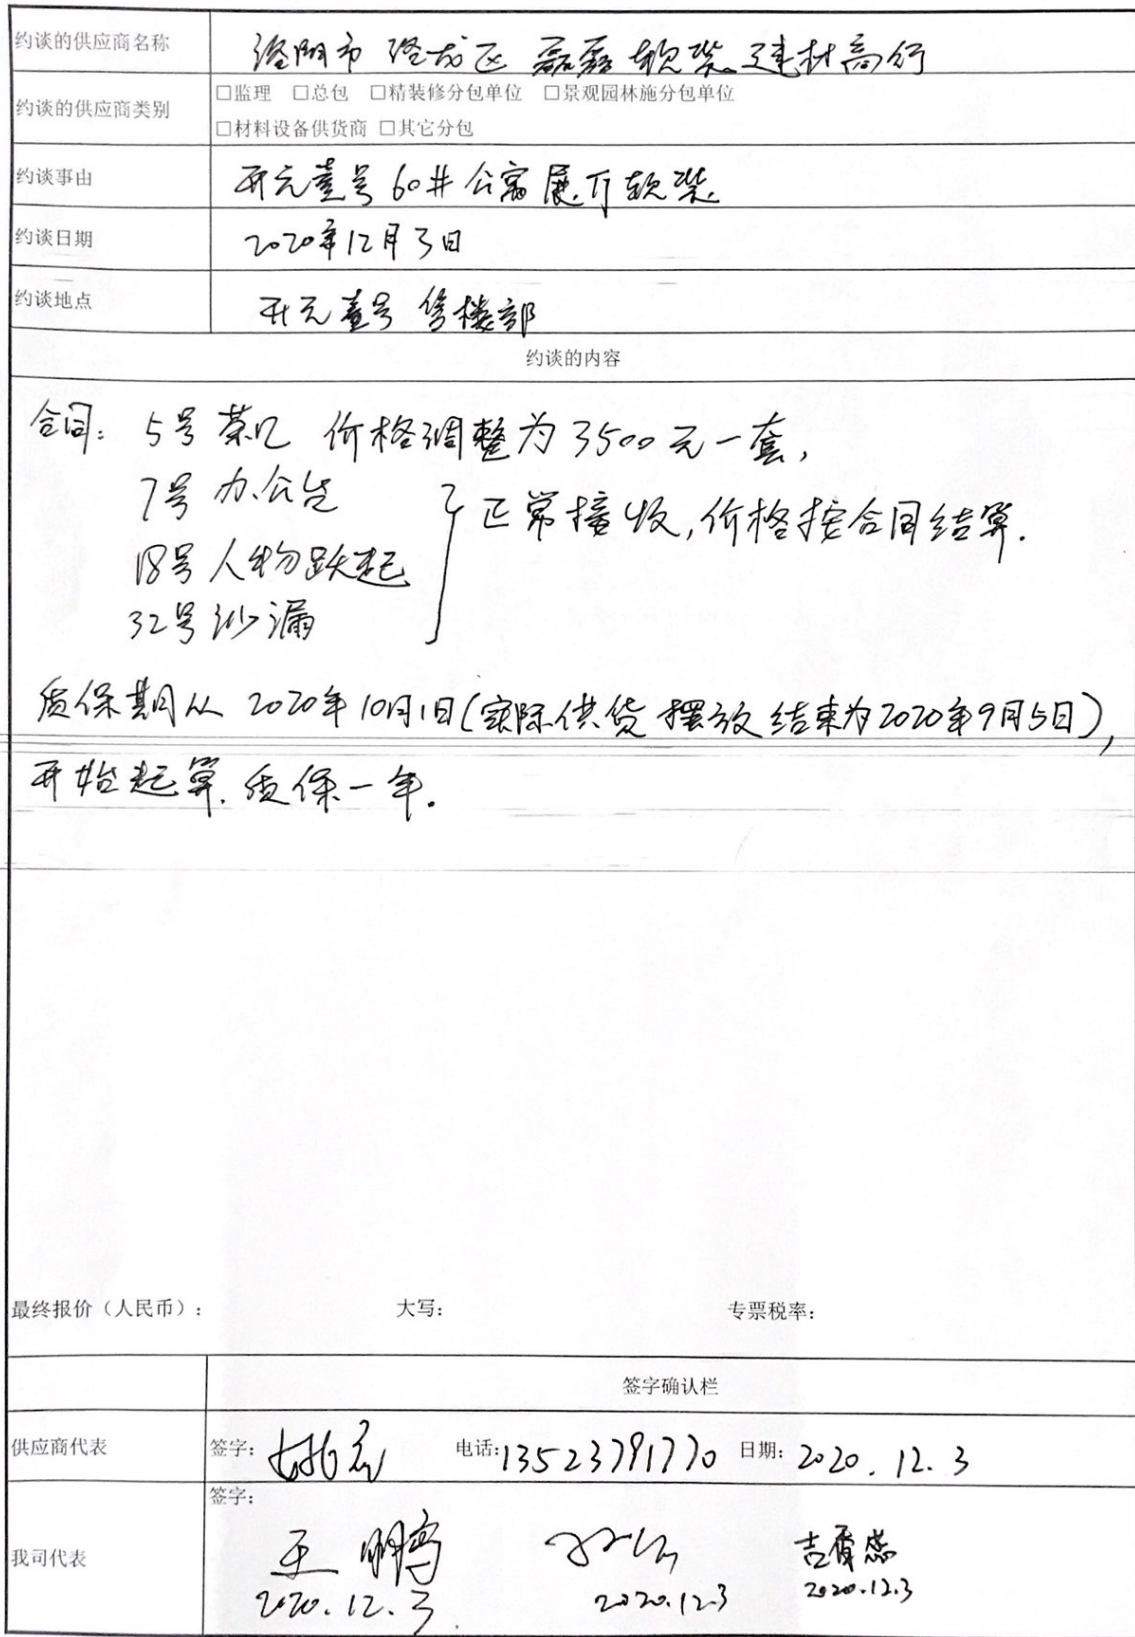 约谈的供应商名称 洛阳市 洛龙区 磊磊 软装 建材商行
约谈的供应商类别 □监理 □总包 □精装修分包单位 □景观园林施分包单位
□材料设备供货商 □其它分包
约谈事由 开元壹号 60# 公寓展厅软装
约谈日期 2020年12月3日
约谈地点 开元壹号 售楼部
约谈的内容
合同: 5号 茶几 价格调整为 3500元一套,
7号 办公
18号 人物跃起 正常接收, 价格按合同结算.
32号 沙漏
质保期从 2020年10月1日(实际供货 摆放 结束为2020年9月5日),
开始起算. 质保一年.
最终报价（人民币）: 大写: 专票税率:
签字确认栏
供应商代表 签字: 电话:13523791770 日期: 2020.12.3
签字:
我司代表 王鹏
2020.12.3 2020.12.3 2020.12.3